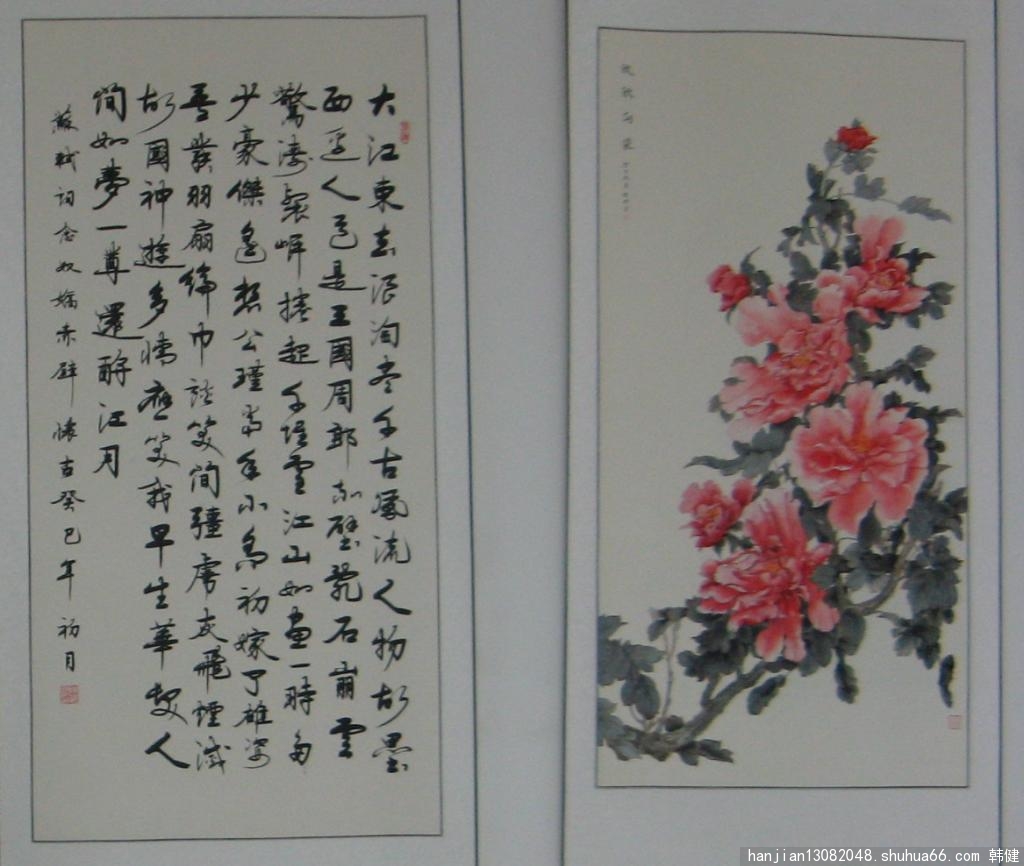 大江東去浪淘盡千古風流人物故壘
西邊人道是三國周郎赤壁亂石崩雲
驚濤裂岸捲起千堆雪江山如畫一時多
少豪傑遙想公瑾當年小喬初嫁了雄姿
英發羽扇綸巾談笑間彊虜灰飛煙滅
故國神遊多情應笑我早生華髮人
間如夢一尊還酹江月
蘇軾詞念奴嬌赤壁懷古癸巳年初月
欣欣向榮
hanjian13082048.shuhua66.com 韩健